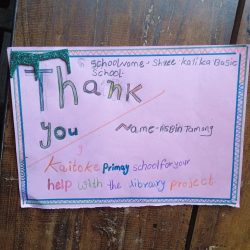 schoolname:- Shree Kalika Basic
School.
Thank
you
Name:- Asbin Tamang
,
Kaitoke primay school for your
help with the library project.